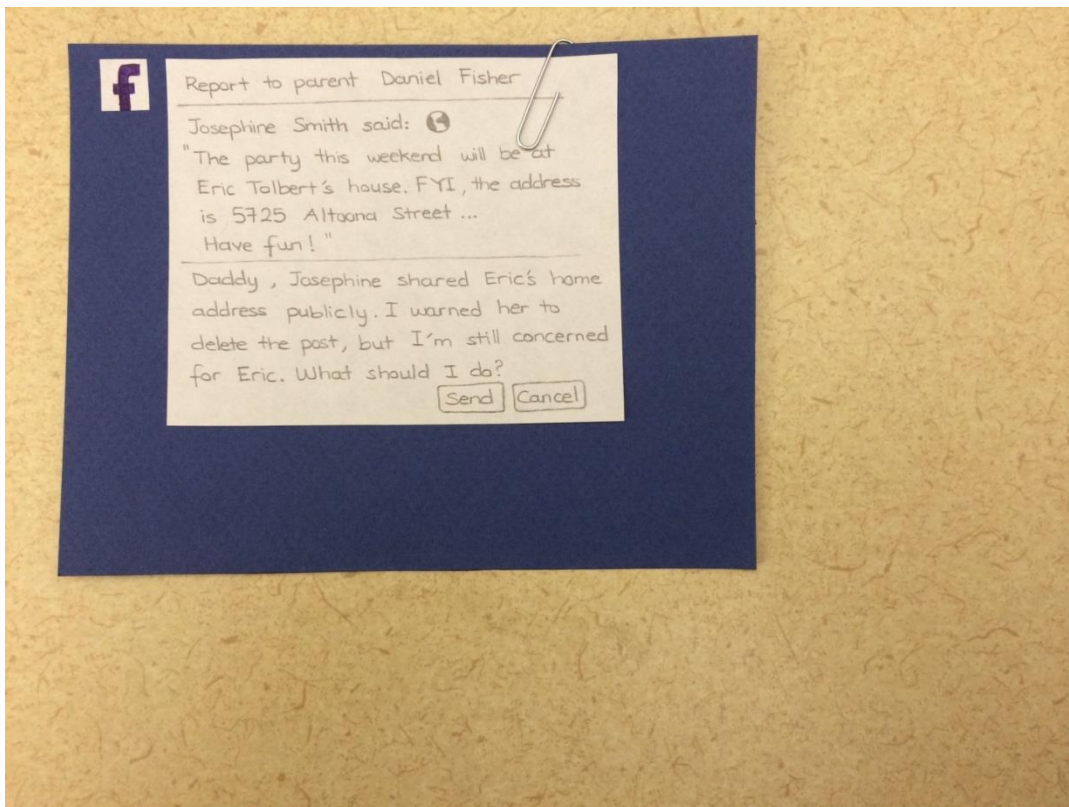 f
Report to parent Daniel Fisher
Josephine Smith said:
"The party this weekend will be at
Eric Tolbert's house. FYI, the address
is 5725 Altoona Street ...
Have fun!"
Daddy, Josephine shared Eric's home
address publicly. I warned her to
delete the post, but I'm still concerned
for Eric. What should I do?
Send Cancel